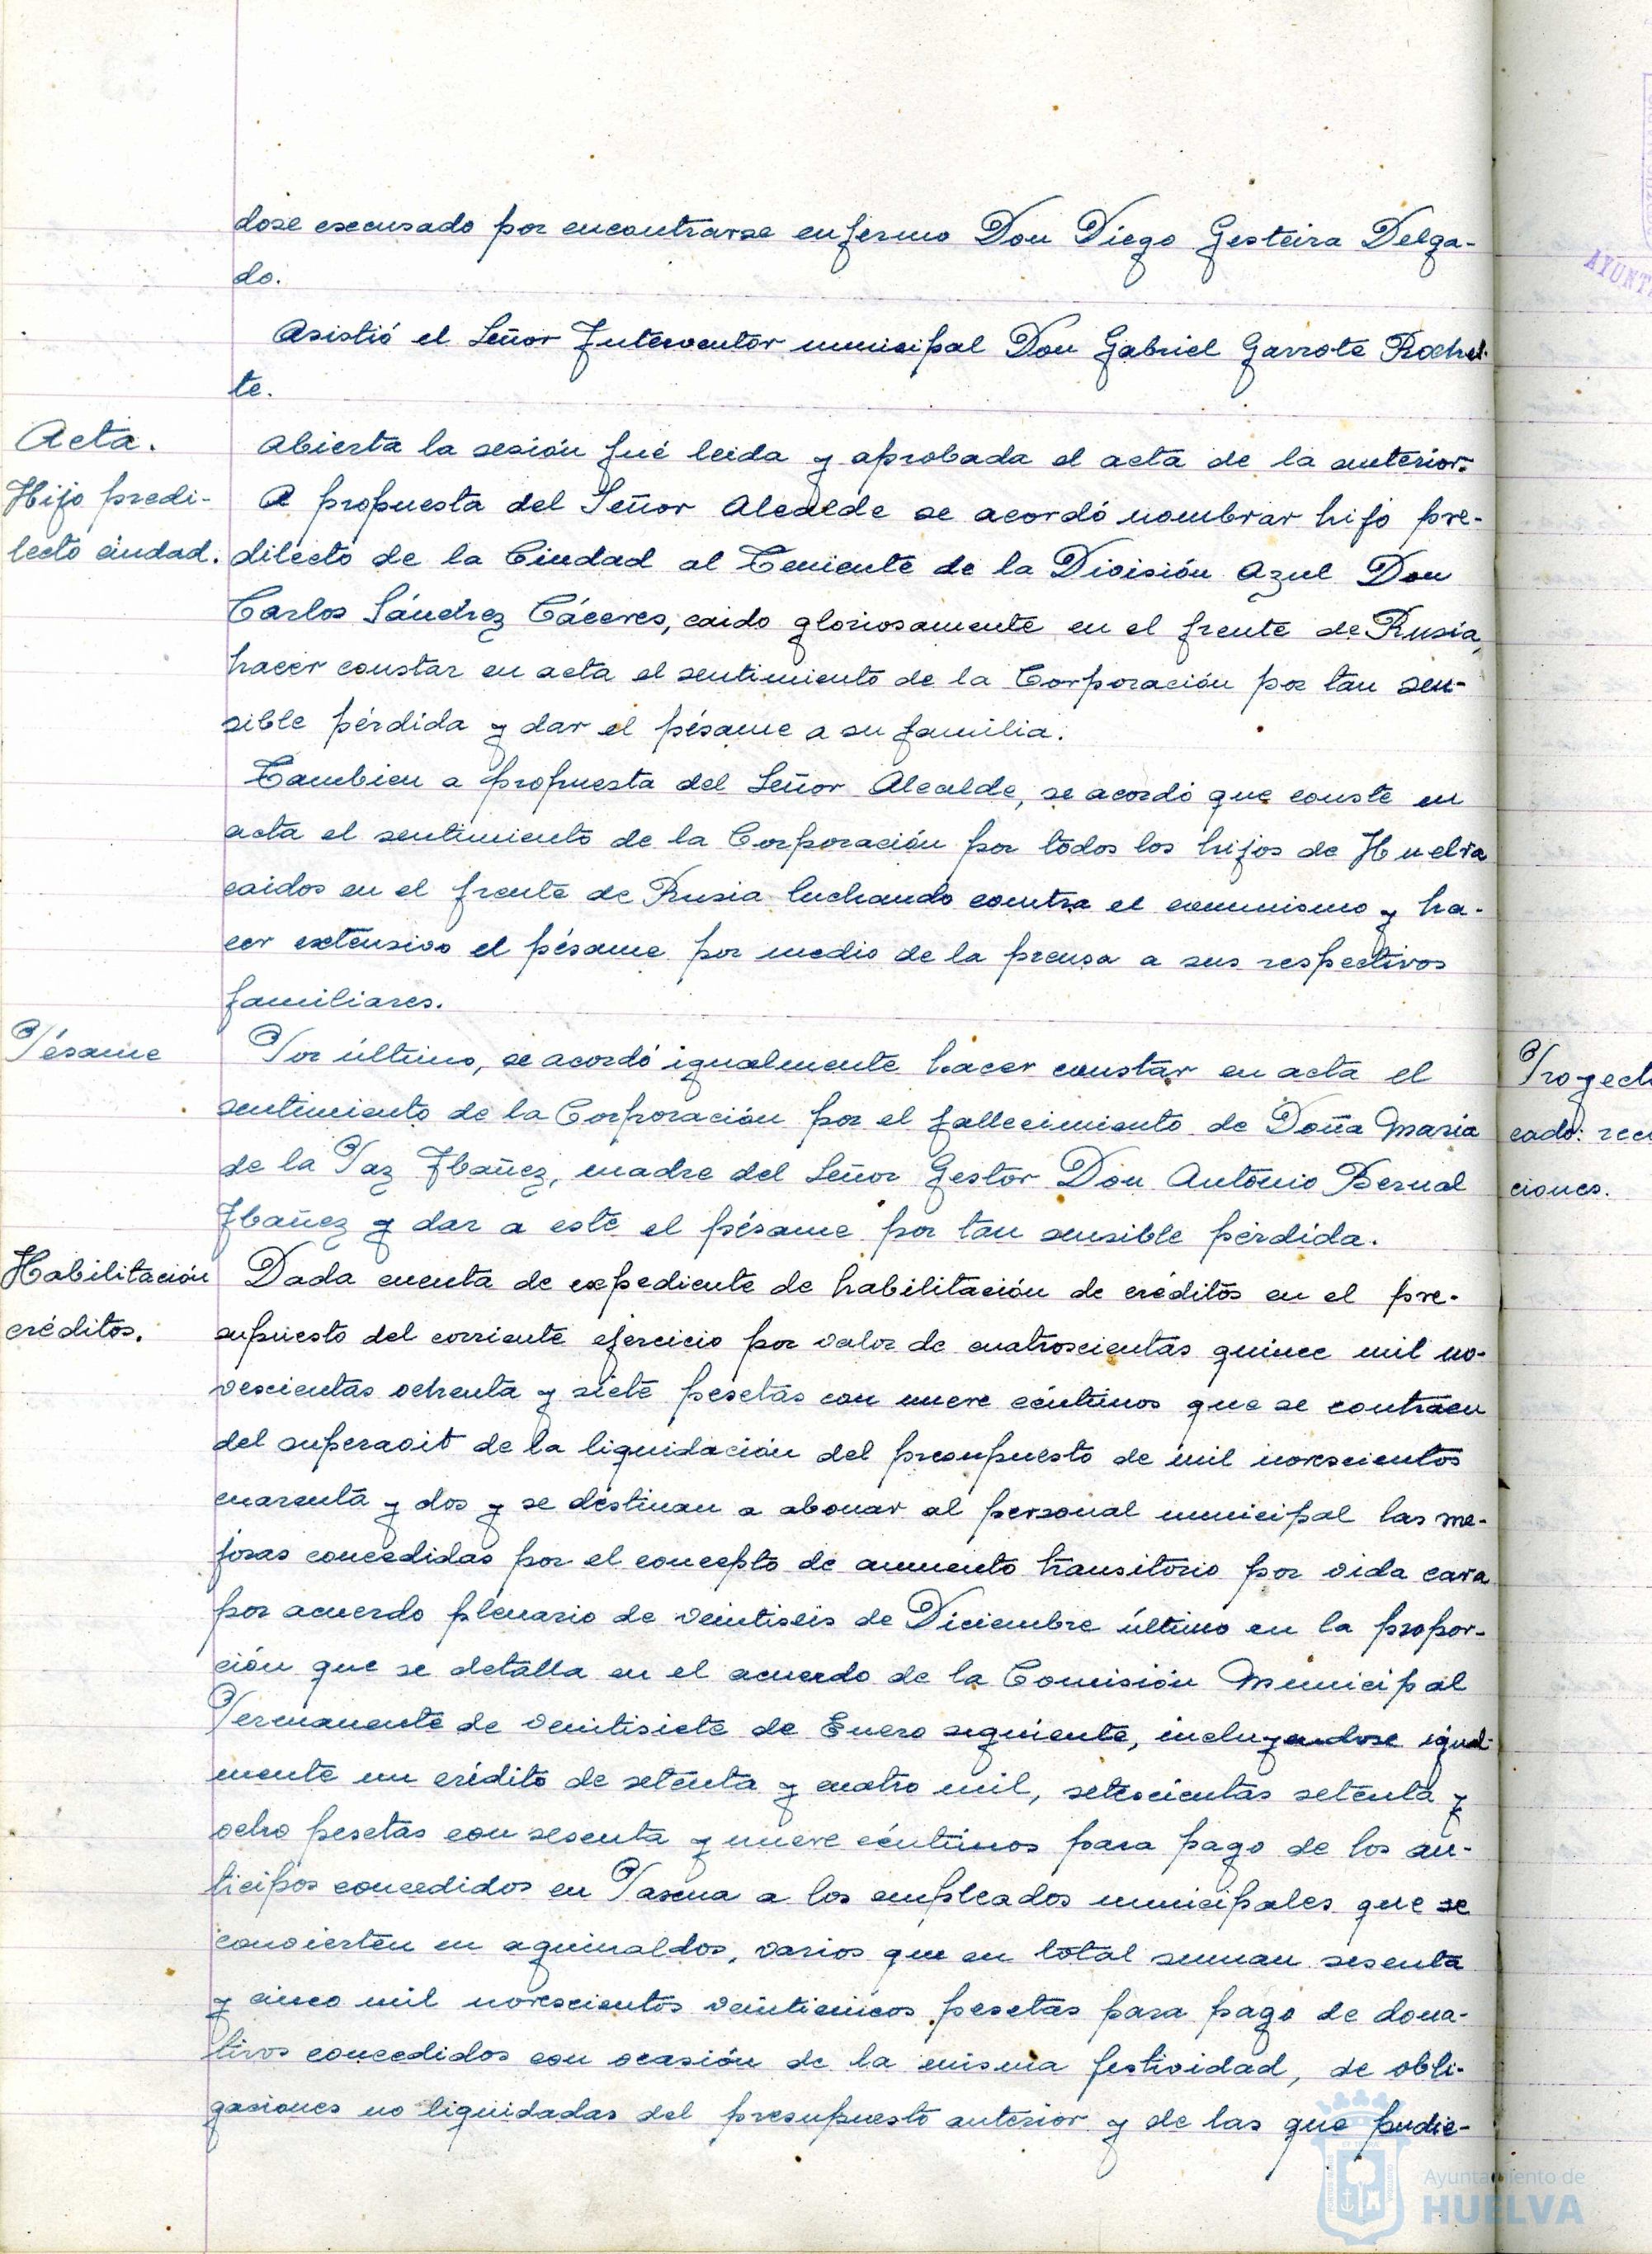 dose escusado por encontrarse enfermo Don Diego Gesteira Delga-
do.
Asistió el Señor Interventor municipal Don Gabriel Garrote Rochel-
te.
Acta.
Abierta la sesión fué leida y aprobada el acta de la anterior.
Hijo predi-
lecto ciudad.
A propuesta del Señor Alcalde se acordó nombrar hijo pre-
dilecto de la Ciudad al Teniente de la División Azul Don
Carlos Sánchez Cáceres, caido gloriosamente en el frente de Rusia,
hacer constar en acta el sentimiento de la Corporación por tan sen-
sible pérdida y dar el pésame a su familia.
Tambien a propuesta del Señor Alcalde, se acordó que conste en
acta el sentimiento de la Corporación por todos los hijos de Huelva
caidos en el frente de Rusia luchando contra el comunismo y ha-
cer extensivo el pésame por medio de la prensa a sus respectivos
familiares.
Pésame
Por último, se acordó igualmente hacer constar en acta el
sentimiento de la Corporación por el fallecimiento de Doña Maria
de la Paz Ibañez, madre del Señor Gestor Don Antonio Bernal
Ibañez y dar a este el pésame por tan sensible pérdida.
Habilitación
créditos.
Dada cuenta de expediente de habilitación de créditos en el pre-
supuesto del corriente ejercicio por valor de cuatroscientas quince mil no-
vescientas ochenta y siete pesetas con nueve céntimos que se contraen
del superavit de la liquidación del presupuesto de mil novescientos
cuarenta y dos y se destinan a abonar al personal municipal las me-
joras concedidas por el concepto de aumento transitorio por vida cara
por acuerdo plenario de veintiseis de Diciembre último en la propor-
ción que se detalla en el acuerdo de la Comisión Municipal
Permanente de venitisiete de Enero seguiente, incluyendose igual-
mente un crédito de setenta y cuatro mil, setescientas setenta y
ocho pesetas con sesenta y nueve céntimos para pago de los an-
ticipos concedidos en Pascua a los empleados municipales que se
convierten en aguinaldos, varios que en total suman sesenta
y cinco mil novescientos veinticincos pesetas para pago de dona-
tivos concedidos con ocasión de la misma festividad, de obli-
gaciones no liquidadas del presupuesto anterior y de las que pudie-
AYUNT
Proyect
cado: rec
ciones.
Ayuntamiento de
HUELVA